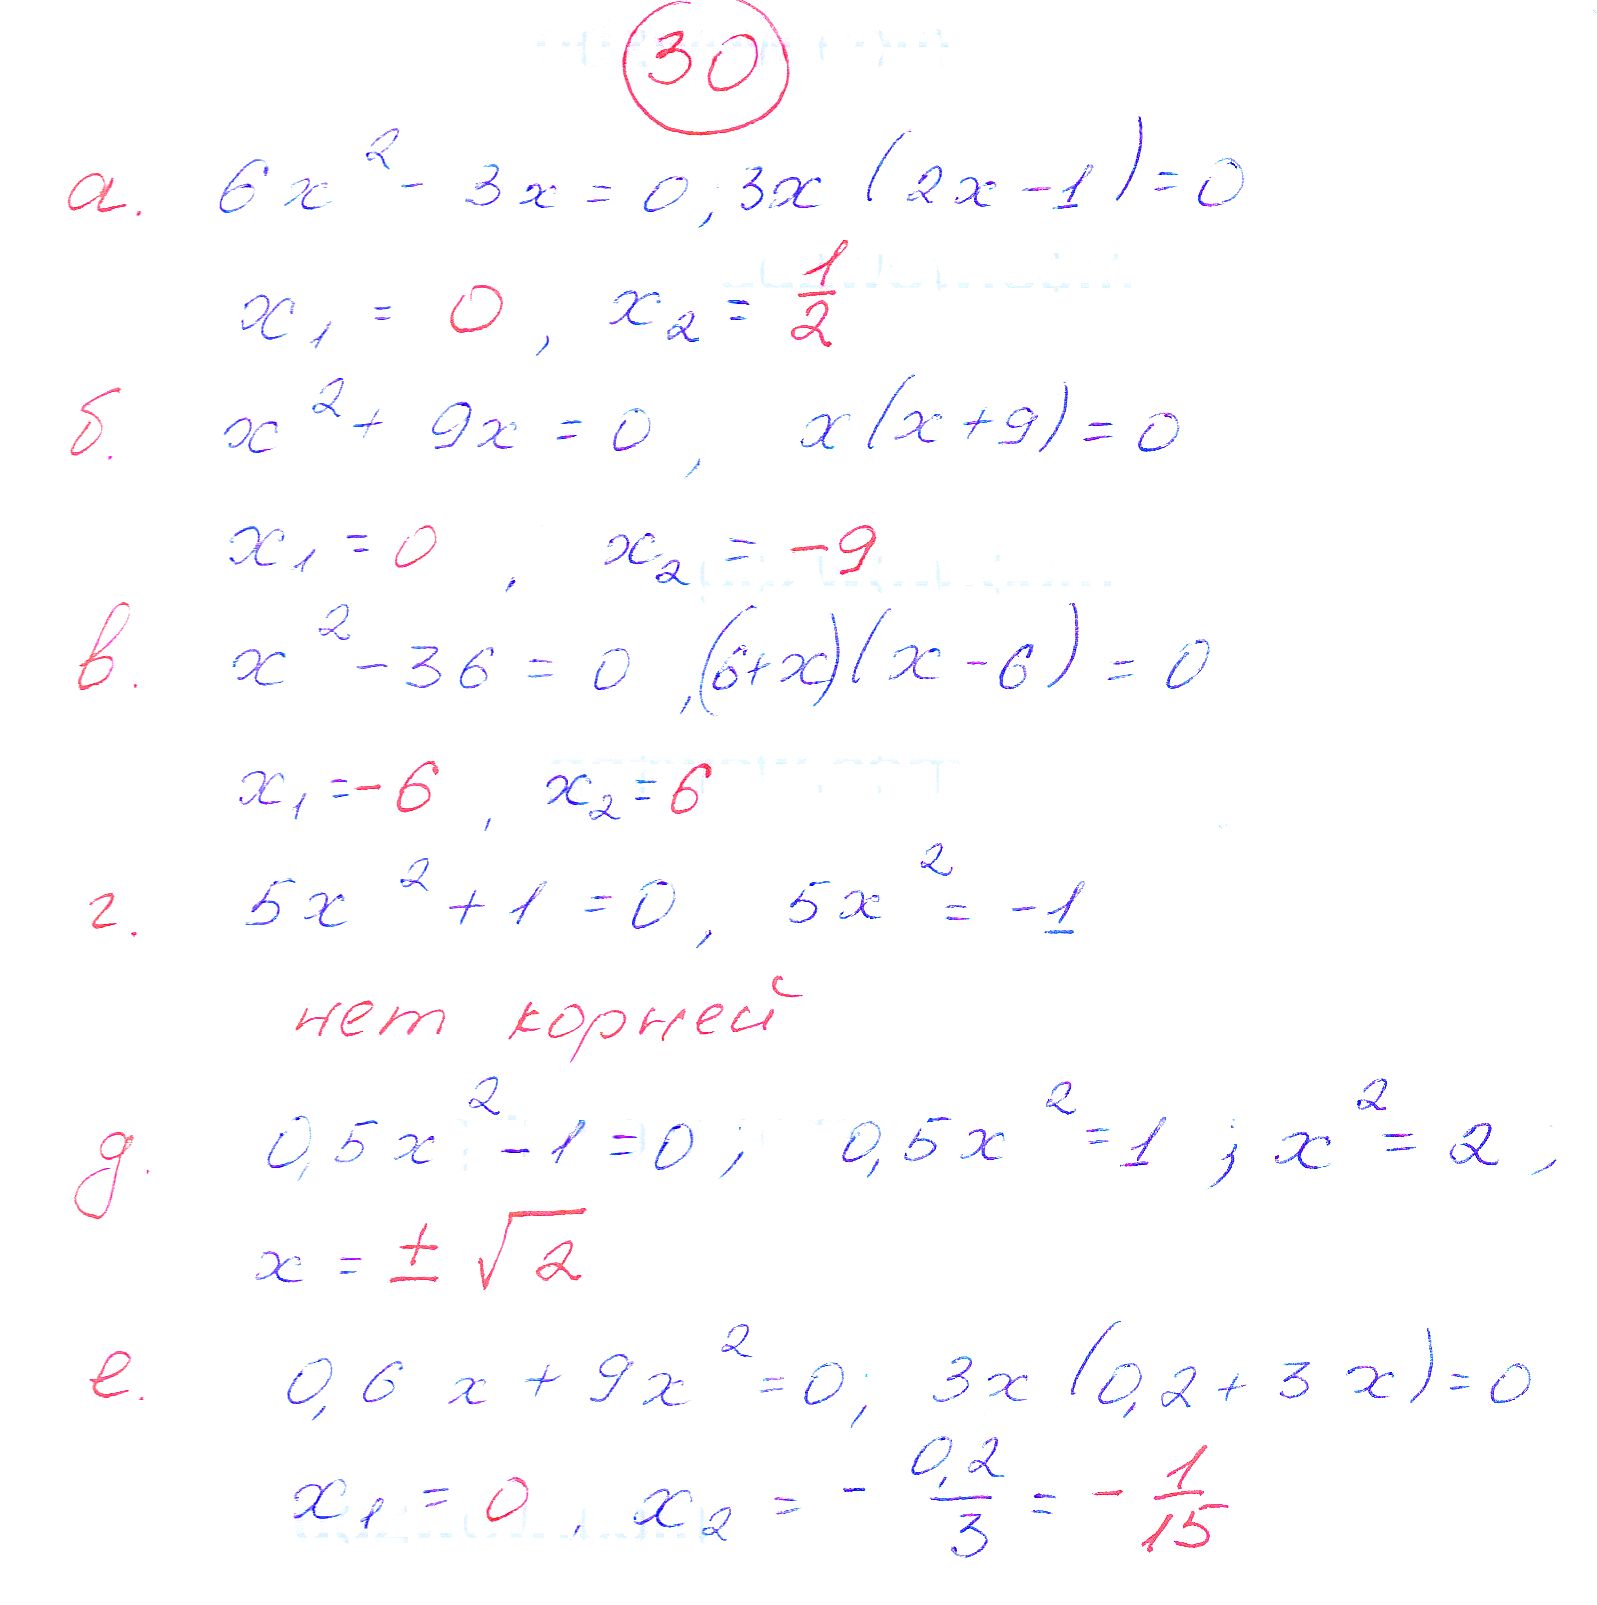 30
а. 6x² - 3x = 0; 3x (2x - 1) = 0
x₁ = 0, x₂ = 1/2
б. x² + 9x = 0, x(x + 9) = 0
x₁ = 0, x₂ = -9
в. x² - 36 = 0, (6+x)(x - 6) = 0
x₁ = -6, x₂ = 6
г. 5x² + 1 = 0, 5x² = -1
нет корней
д. 0,5x² - 1 = 0; 0,5x² = 1; x² = 2,
x = ± √2
е. 0,6x + 9x² = 0; 3x (0,2 + 3x) = 0
x₁ = 0, x₂ = - 0,2/3 = - 1/15